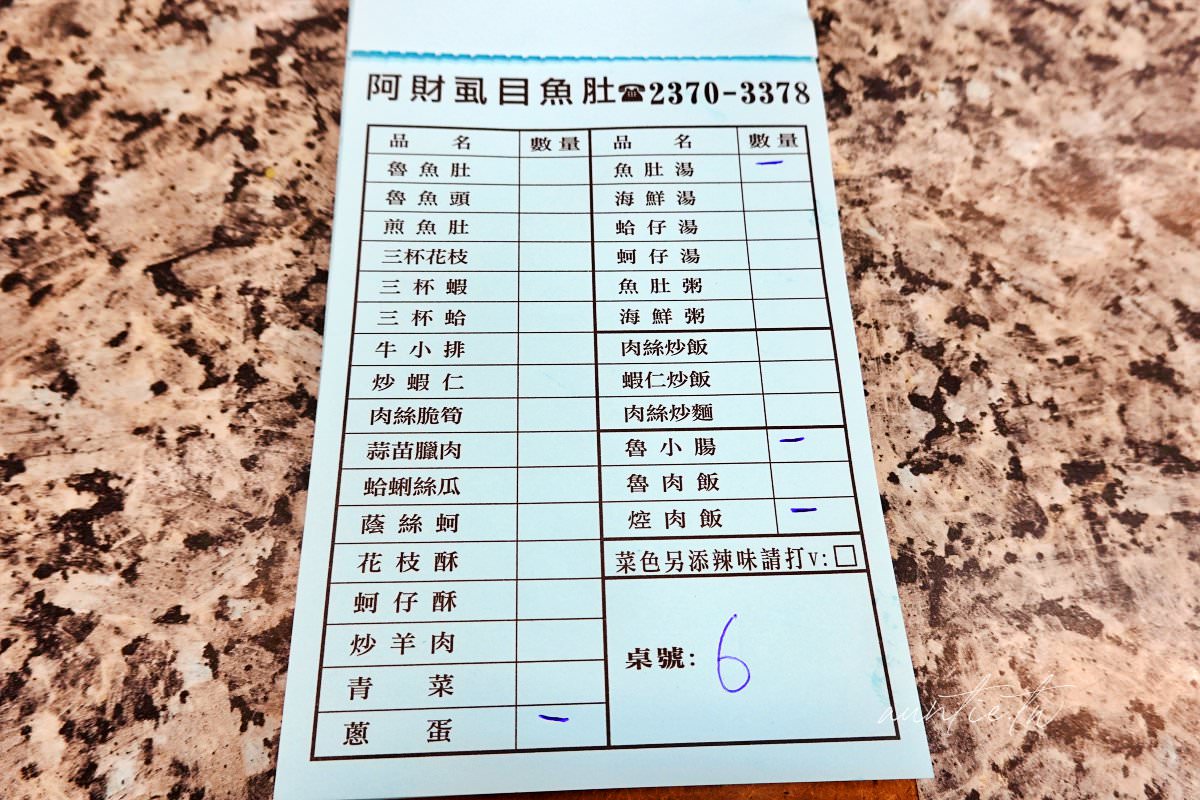 阿財虱目魚肚☎2370-3378
品名 數量 品名 數量
魯魚肚 魚肚湯 一
魯魚頭 海鮮湯
煎魚肚 蛤仔湯
三杯花枝 蚵仔湯
三杯蝦 魚肚粥
三杯蛤 海鮮粥
牛小排 肉絲炒飯
炒蝦仁 蝦仁炒飯
肉絲脆筍 肉絲炒麵
蒜苗臘肉 魯小腸 一
蛤蜊絲瓜 魯肉飯
蔭絲蚵 焢肉飯 一
花枝酥 菜色另添辣味請打v:□
蚵仔酥
炒羊肉 桌號: 6
青菜
蔥蛋 一
auntie.ta